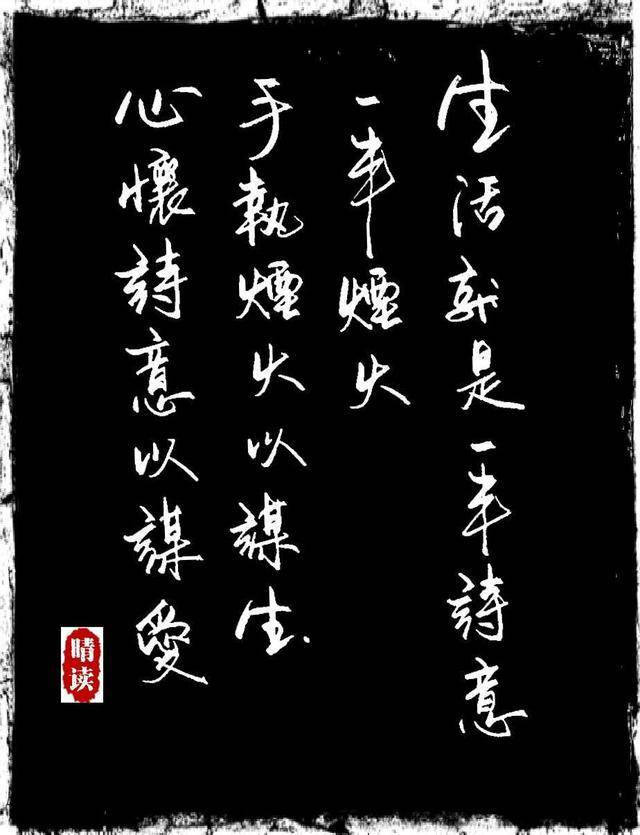 生活就是一半詩意
一半煙火
手執煙火以謀生
心懷詩意以謀愛
晴读